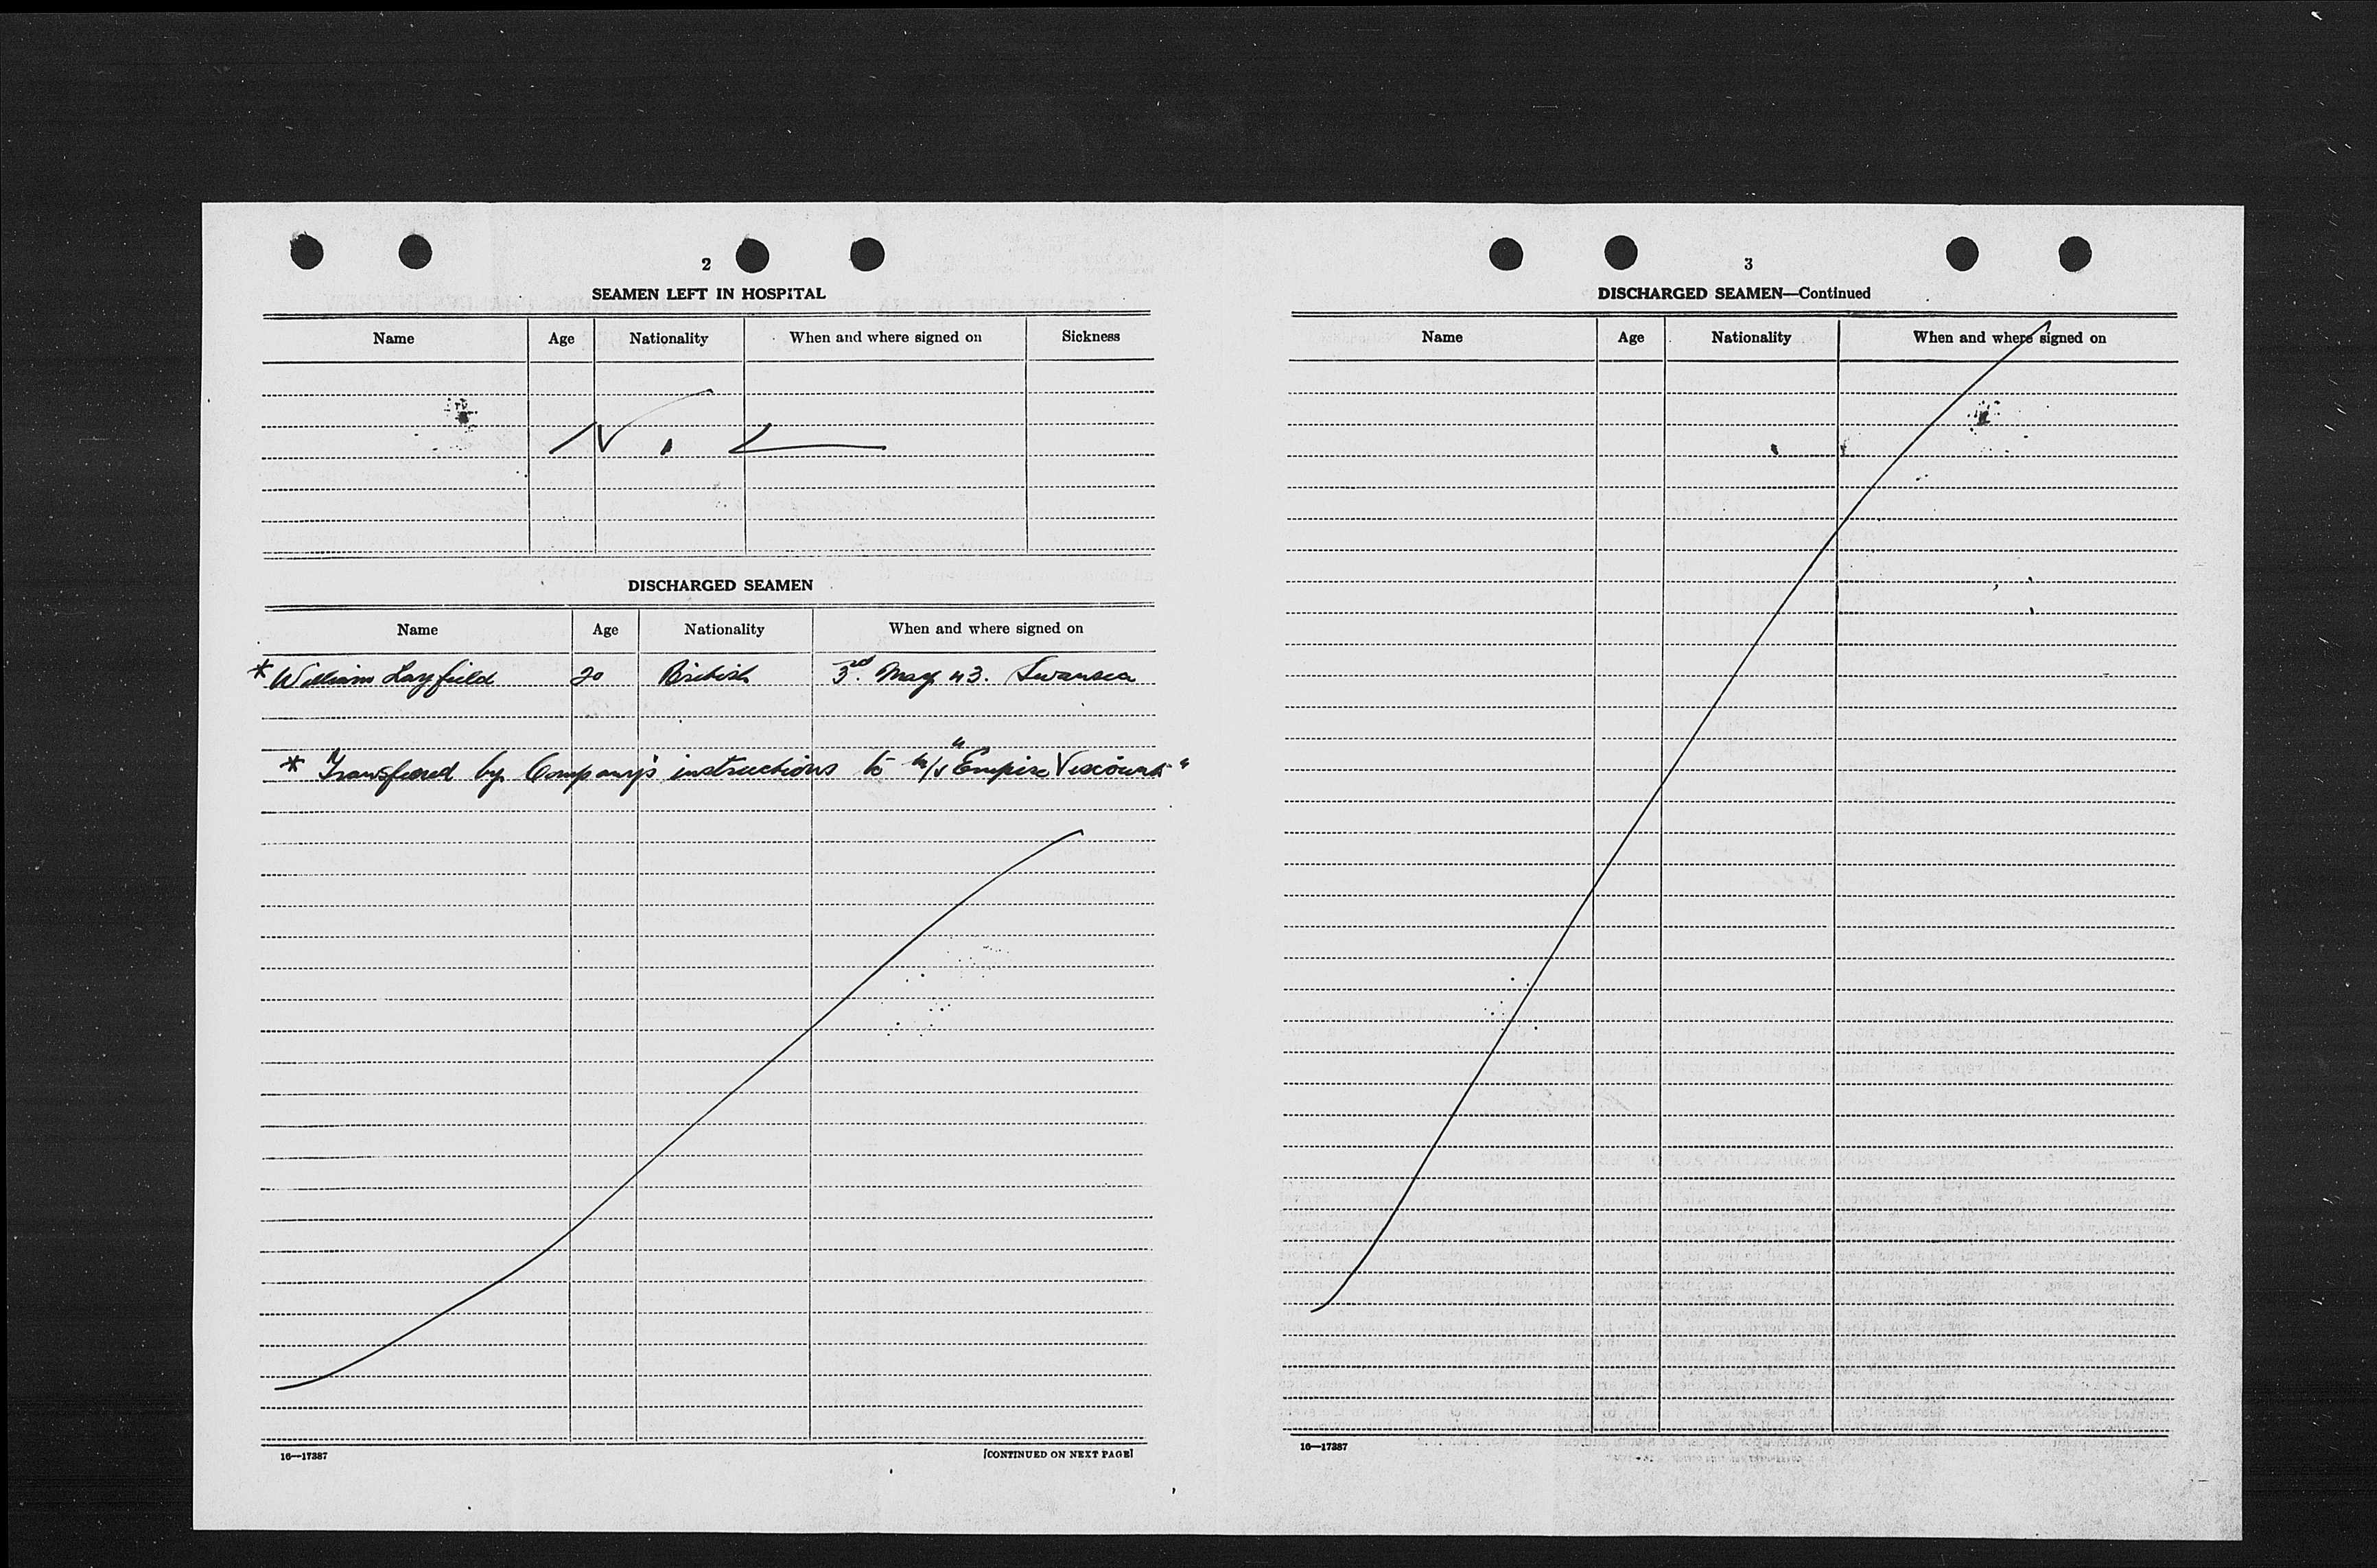 2
SEAMEN LEFT IN HOSPITAL
Name Age Nationality When and where signed on Sickness
NIL
DISCHARGED SEAMEN
Name Age Nationality When and where signed on
* William Layfield 20 British 3rd. May 43. Swansea
* Transfered by Company's instructions to M/V "Empire Viscount"
16—17387 [CONTINUED ON NEXT PAGE]
3
DISCHARGED SEAMEN—Continued
Name Age Nationality When and where signed on
16—17387